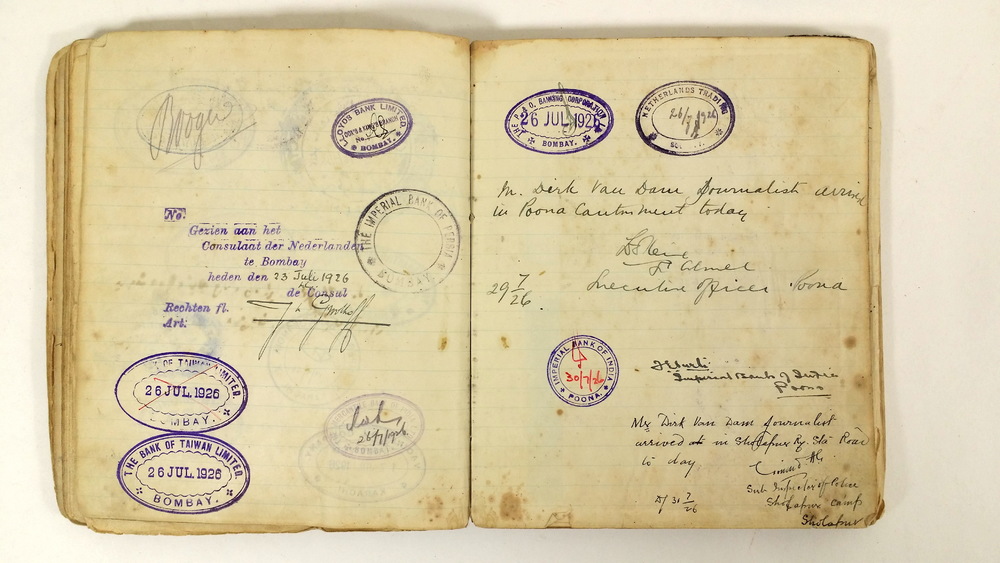 LLOYDS BANK LIMITED
BOMBAY.
THE IMPERIAL BANK OF PERSIA
BOMBAY.
No.
Gezien aan het
Consulaat der Nederlanden
te Bombay
heden den 23 Juli 1926
de Consul
Rechten fl.
Art:
OF TAIWAN LIMITED.
26 JUL. 1926
BOMBAY.
THE BANK OF TAIWAN LIMITED.
26 JUL. 1926
BOMBAY.
26/7/1926
BOMBAY.
THE P. & O. BANKING CORPORATION
26 JUL 1926
BOMBAY.
NETHERLANDS TRADING
26/7 1926
M. Dirk Van Dam Journalist arrived
in Poona Cantonment today
Executive Officer Poona
29 7/26.
IMPERIAL BANK OF INDIA
30/7/26
POONA.
Imperial Bank of India
Poona
Mr Dirk Van Dam Journalist
arrived at in Sholapur Ry. Stn
to day
Sub Inspector of Police
Sholapur Camp
Sholapur
D/ 30 7/26